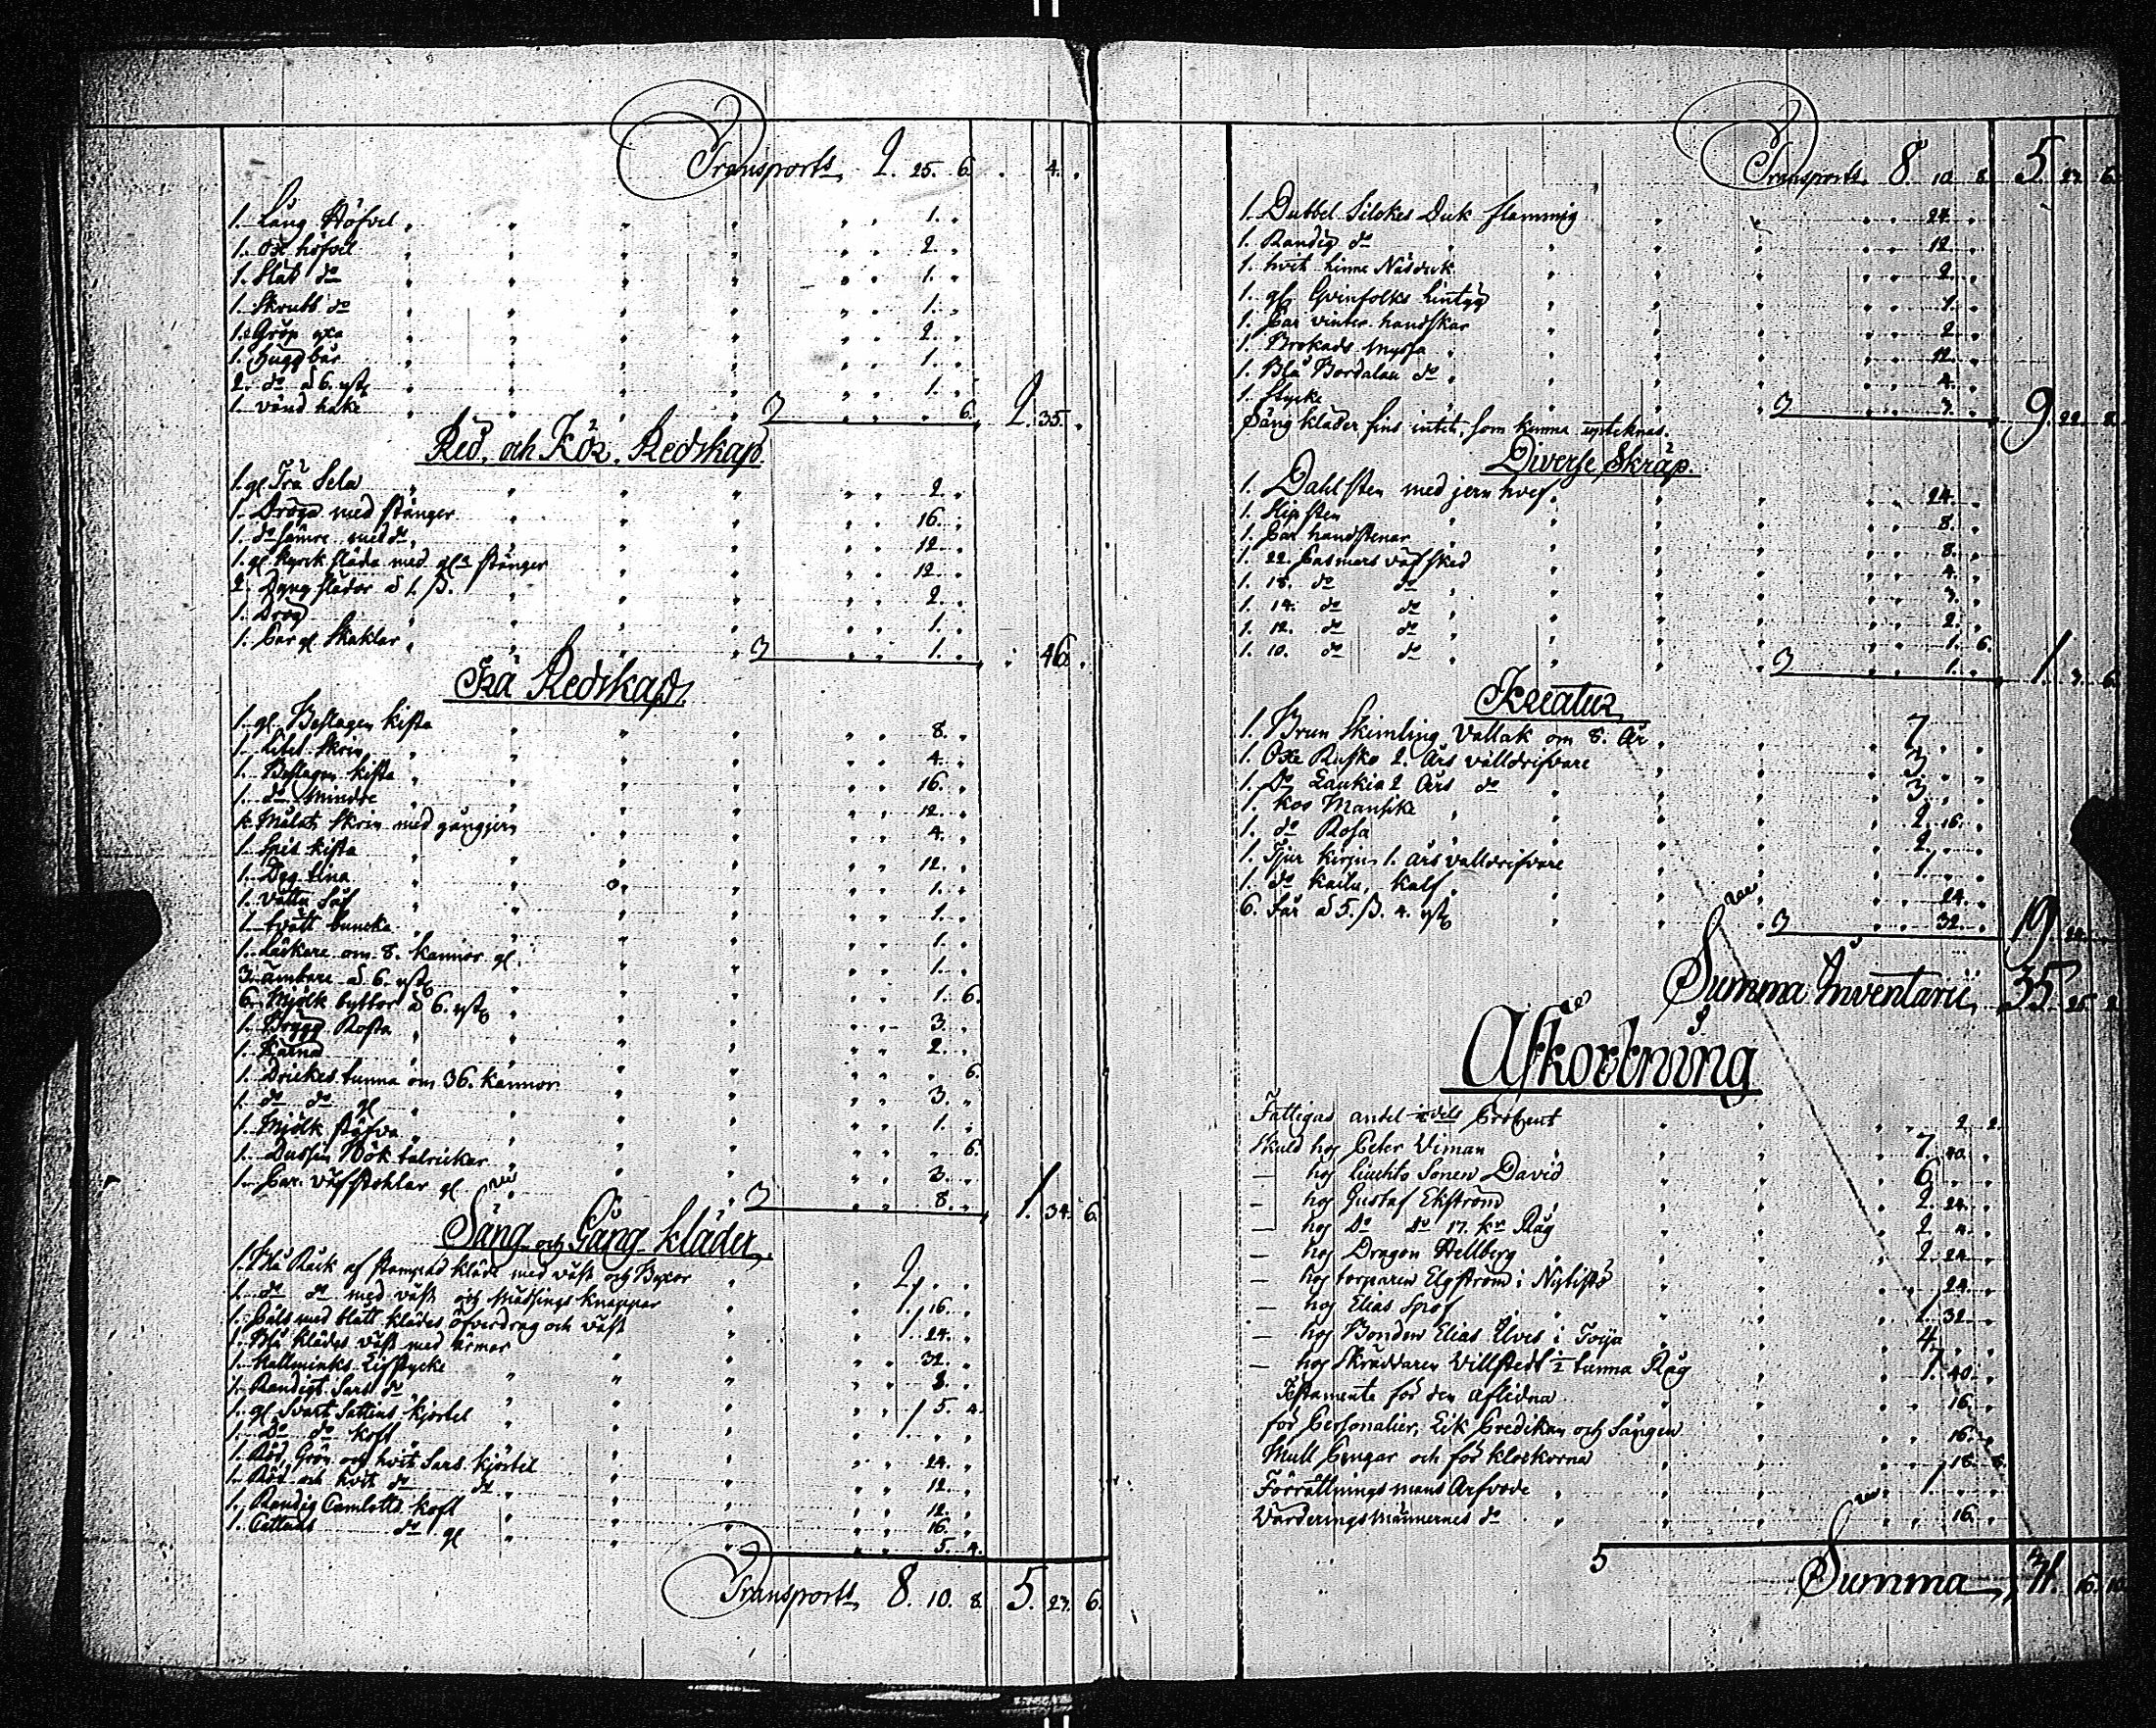 Transport 2. 25. 6. 4.
1. Lång Höfvel 1.
1. Ox höfvel 2.
1. Slät do 1.
1. Skrubb do 1.
1. Gröp yxa 2.
1. Hugg bår 1.
2. do à 6. rst 1.
1. vänd hake 6. 2. 35.
Red. och Kör. Redskap
1. gl. Trä Sela 2.
1. Dröga med stänger 16.
1. do sämre med do 12.
1. gl. kyrck släda med gla stänger 12.
2. Dyng slädor à 1. ß. 2.
1. Drög 1.
1. Par gl. Skaklar 1. 46.
Trä Redskap
1. gl. Beslagen kista 8.
1. Litet Skrin 4.
1. Beslagen kista 16.
1. do mindre 12.
1. Målat Skrin med gångjern 4.
1. Spis kista 12.
1. Deg tina 1.
1. Vattu Så 1.
1. tvätt buncka 1.
1. Läskare om 8. kannor gl. 1.
3. ämbare à 6. rst 1. 6.
6. Mjölk byttor à 6. rst 3.
1. Brygg Rosta 2.
1. Kärna 6.
1. Drickes tunna om 36. kannor 3.
1. do do gl. 1.
1. Mjölk stäfva 6.
1. Dussin Bök talrickar 3.
1. Par. väfstoklar gl. 8. 1. 34. 6.
Säng och Gång kläder
1. Blå Råck af stampad kläde med väst och Byxor 2.
1. do do med väst och Mässings knappar 1. 16.
1. Päls med blått klädes öfverdrag och väst 24.
1. Blå klädes väst med ärmar 32.
1. Kallminks Lifstycke 8.
1. Randigt Sars do 5. 4.
1. gl. Svart Sattins kjortel 1.
1. Do do koft 24.
1. Röd, Grön och hvit Sars kjortel 12.
1. Röd och hvit do do 12.
1. Randig Camlotts koft 16.
1. Cattuns do gl. 5. 4.
Transport 8. 10. 8. 5. 23. 6.
Transport 8. 10. 8. 5. 23. 6.
1. Dubbel Silckes Duk flammig 24.
1. Randig do 12.
1. hvit Linne Näsduk 2.
1. gl. Qvinfolks Lintyg 1.
1. Par vinter handskar 2.
1. Brokads Myssa 12.
1. Blå Bordalan do 4.
1. Stycke 3. 9. 22. 8.
Säng kläder fins intet, som kunna upteknas.
Diverse Skräp
1. Dahlsten med jern hvef 24.
1. Slip sten 8.
1. Par handstenar 8.
1. 22. Pasmars väf sked 4.
1. 18. do do 3.
1. 14. do do 2.
1. 12. do do 1. 6.
1. 10. do do 1. 1. 3. 6.
Kreatur
1. Brun Skimling Vallak om 8. År 7.
1. Oxe Rusko 2. Års välldrifvare 3.
1. Do Laukia 2 Års do 3.
1. Koo Mansike 2. 16.
1. do Rosa 2.
1. Tjur kirjus 1. års välldrifvare 1.
1. do kalf 24.
6. Får à 5. ß. 4. rst 32. 19. 24.
Summa Inventarii 35. 25. 2.
Afkortning
Fattigas andel Procent 2. 2.
Skuld hos Peter Viman 7. 40.
— hos Sonen David 6.
— hos Gustaf Ekström 2. 24.
— hos Do Do 17. kr Råg 2. 4.
— hos Dragon Hellberg 2. 24.
— hos torparen Elgström i 24.
— hos Elias Spof 1. 32.
— hos Bonden Elias Elves i Toija 4.
— hos Skräddaren Villstedt ½ tunna Råg 1. 40.
Testamente för den aflidna 16.
för Personalier, Lik Predikan och Sången 16.
Mull Pengar och för klockorna 18. 8.
Förrättnings mans Arfvode 1.
Värderings Männernes do 16.
Summa 31. 16. 10.